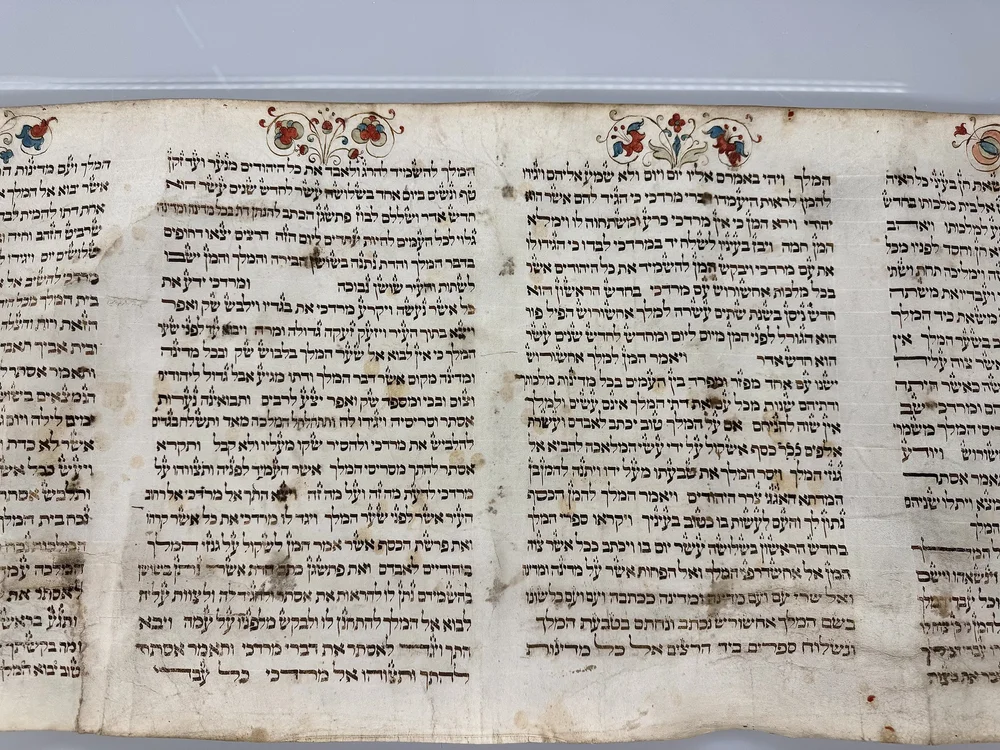 נשאת חן בעיני כל ראיה
אל בית מלכותו בחדש
מלכותו ויאהב
חן וחסד לפניו מכל
וימליכה תחת ושתי
ועבדיו את משתה
משאת כיד המלך
בשער המלך אין
עליה
כאשר היתה
ומרדכי ישב
המלך משמרי
ויודע
אסתר
וימצא ויתלו שניהם
המלך
וינשאהו וישם
המלך ויהי באמרם אליו יום ויום ולא שמע אליהם ויגידו
להמן לראות היעמדו דברי מרדכי כי הגיד להם אשר הוא
יהודי וירא המן כי אין מרדכי כרע ומשתחוה לו וימלא
המן חמה ויבז בעיניו לשלח יד במרדכי לבדו כי הגידו לו
את עם מרדכי ויבקש המן להשמיד את כל היהודים אשר
בכל מלכות אחשורוש עם מרדכי בחדש הראשון הוא
חדש ניסן בשנת שתים עשרה למלך אחשורוש הפיל פור
הוא הגורל לפני המן מיום ליום ומחדש לחדש שנים עשר
הוא חדש אדר ויאמר המן למלך אחשורוש
ישנו עם אחד מפזר ומפרד בין העמים בכל מדינות מלכותך
ודתיהם שנות מכל עם ואת דתי המלך אינם עשים ולמלך
אין שוה להניחם אם על המלך טוב יכתב לאבדם ועשרת
אלפים ככר כסף אשקול על ידי עשי המלאכה להביא אל
גנזי המלך ויסר המלך את טבעתו מעל ידו ויתנה להמן בן
המדתא האגגי צרר היהודים ויאמר המלך להמן הכסף
נתון לך והעם לעשות בו כטוב בעיניך ויקראו ספרי המלך
בחדש הראשון בשלושה עשר יום בו ויכתב ככל אשר צוה
המן אל אחשדרפני המלך ואל הפחות אשר על מדינה ומדינה
ואל שרי עם ועם מדינה ומדינה ככתבה ועם ועם כלשונו
בשם המלך אחשורוש נכתב ונחתם בטבעת המלך
ונשלוח ספרים ביד הרצים אל כל מדינות
המלך להשמיד להרג ולאבד את כל היהודים מנער ועד זקן
טף ונשים ביום אחד בשלושה עשר לחדש שנים עשר הוא
חדש אדר ושללם לבוז פתשגן הכתב להנתן דת בכל מדינה ומדינה
גלוי לכל העמים להיות עתדים ליום הזה הרצים יצאו דחופים
בדבר המלך והדת נתנה בשושן הבירה והמלך והמן ישבו
לשתות והעיר שושן נבוכה ומרדכי ידע את
כל אשר נעשה ויקרע מרדכי את בגדיו וילבש שק ואפר
ויצא בתוך העיר ויזעק זעקה גדולה ומרה ויבוא עד לפני שער
המלך כי אין לבוא אל שער המלך בלבוש שק ובכל מדינה
ומדינה מקום אשר דבר המלך ודתו מגיע אבל גדול ליהודים
וצום ובכי ומספד שק ואפר יצע לרבים ותבואינה נערות
אסתר וסריסיה ויגידו לה ותתחלחל המלכה מאד ותשלח בגדים
להלביש את מרדכי ולהסיר שקו מעליו ולא קבל ותקרא
אסתר להתך מסריסי המלך אשר העמיד לפניה ותצוהו על
מרדכי לדעת מה זה ועל מה זה ויצא התך אל מרדכי אל רחוב
העיר אשר לפני שער המלך ויגד לו מרדכי את כל אשר קרהו
ואת פרשת הכסף אשר אמר המן לשקול על גנזי המלך
ביהודיים לאבדם ואת פתשגן כתב הדת אשר נתן בשושן
להשמידם נתן לו להראות את אסתר ולהגיד לה ולצוות עליה
לבוא אל המלך להתחנן לו ולבקש מלפניו על עמה ויבוא
התך ויגד לאסתר את דברי מרדכי ותאמר אסתר
להתך ותצוהו אל מרדכי כל עבדי
המלך ועם מדינות
אשר יבוא אל המלך
אחת דתו להמית לבד
שרביט הזהב וחיה
שלושים יום ויגידו
מרדכי להשיב אל
בית המלך מכל
הזאת רוח והצלה
ובית אביך תאבדו
ותאמר אסתר
הנמצאים בשושן
ימים לילה ויום
אשר לא כדת
ויעש ככל אשר
ותלבש אסתר
נכח בית המלך
המלכה
לאסתר את
ותגע בראש
ומה בקשתך
טוב יבוא המלך